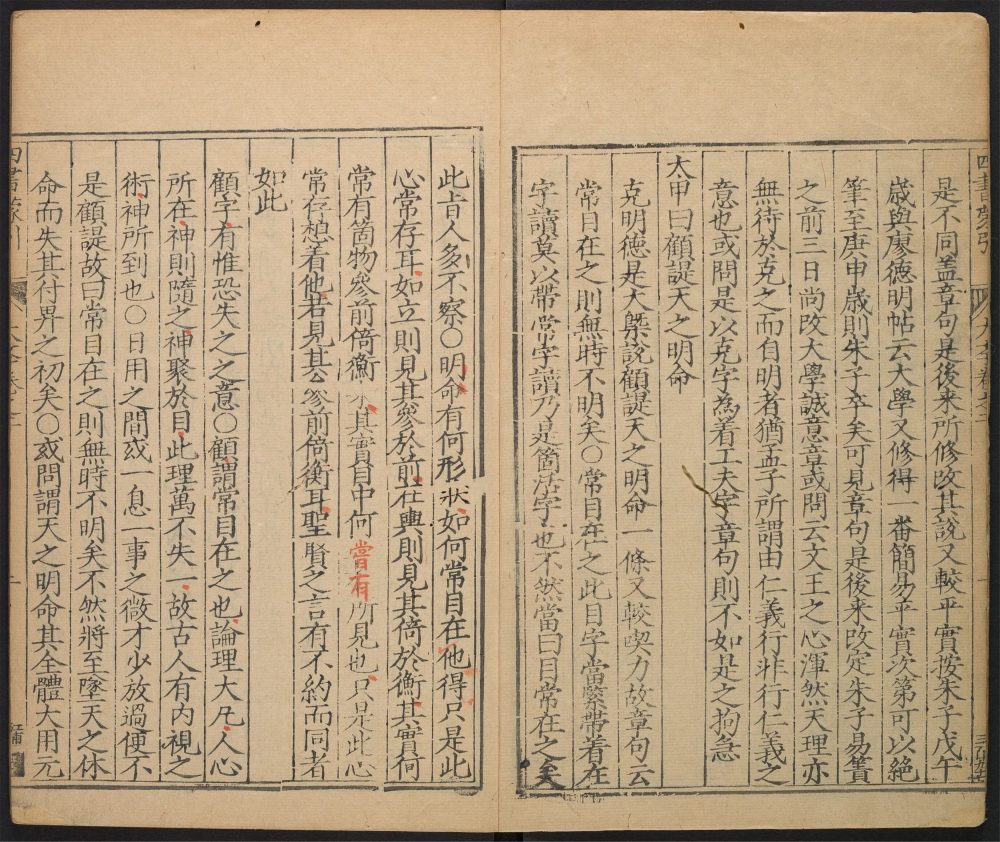 四書蒙引
是不同盖章句是後来所修攺其說又較平實按朱子戊午
歳與廖德明帖云大學又修得一番簡易平實次第可以絶
筆至庚申歳則朱子卒矣可見章句是後来攺定朱子易簀
之前三日尚攺大學誠意章或問云文王之心渾然天理亦
無待於克之而自明者猶孟子所謂由仁義行非行仁義之
意也或問是以克字為着工夫字章句則不如是之拘急
太甲曰顧諟天之明命
克明德是大槩說顧諟天之明命一條又較喫力故章句云
常目在之則無時不明矣○常目在之此目字當緊帶着在
字讀莫以帶常字讀乃是箇活字也不然當曰目常在之矣
此㫖人多不察○明命有何形狀如何常目在他得只是此
心常存耳如立則見其參於前在輿則見其倚於衡其實何
常有箇物參前倚衡其實目中何嘗有所見也只是此心
常存想着他若見其參前倚衡耳聖賢之言有不約而同者
如此
顧字有惟恐失之之意○顧謂常目在之也論理大凡人心
所在神則隨之神聚於目此理萬不失一故古人有内視之
術神所到也○日用之間或一息一事之微才少放過便不
是顧諟故曰常目在之則無時不明矣不然將至墜天之休
命而失其付畀之初矣○或問謂天之明命其全體大用元